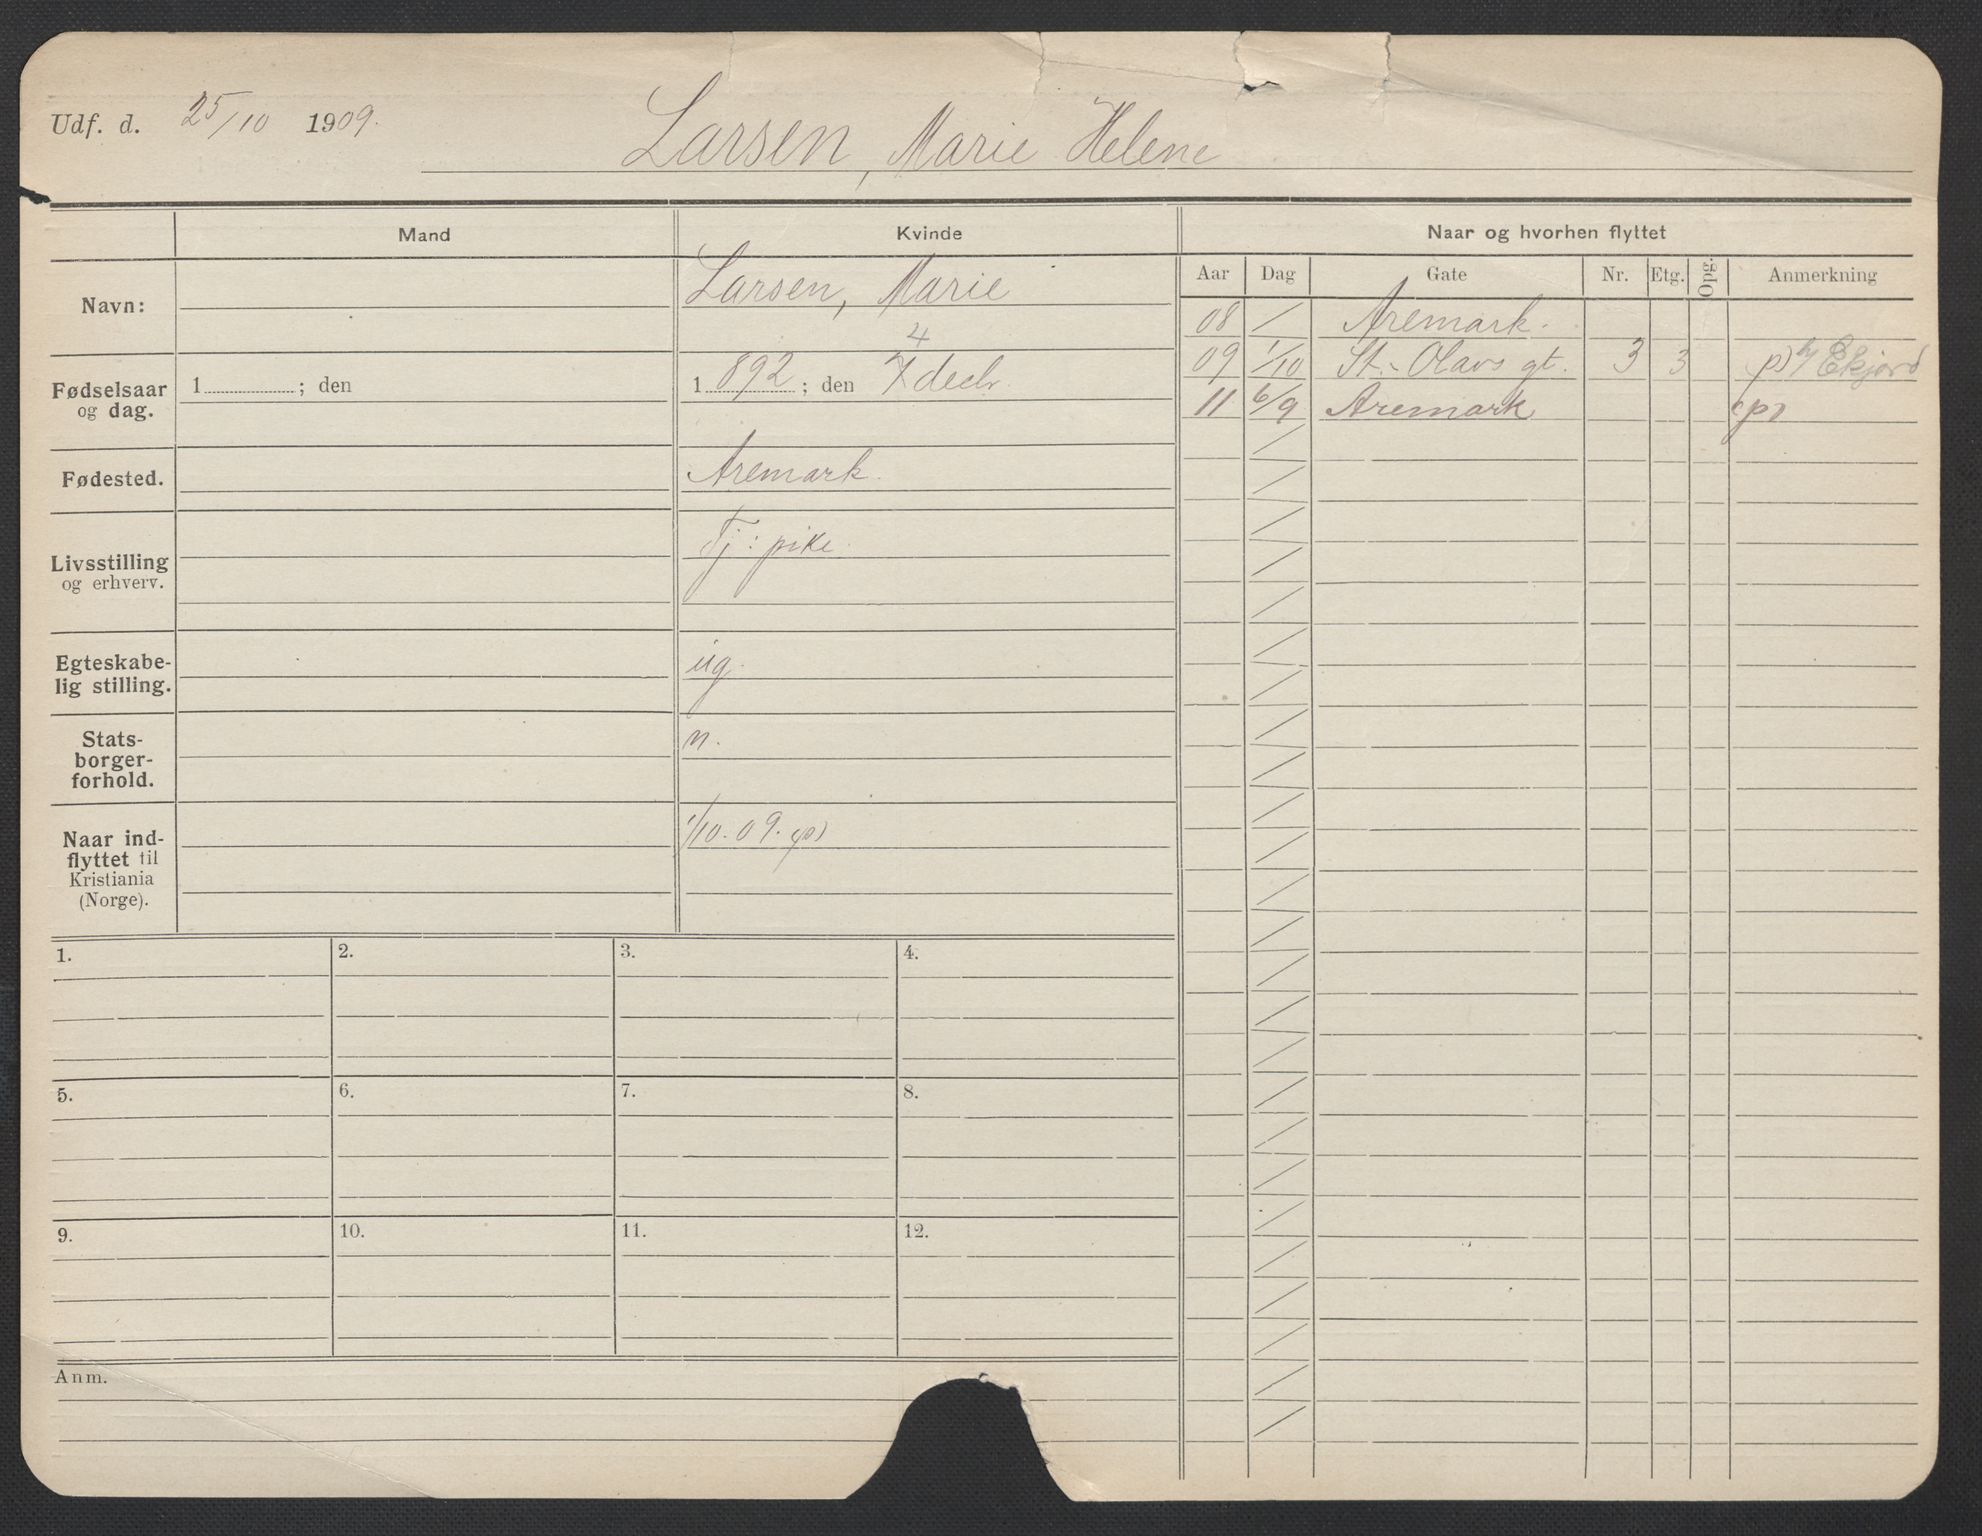 Udf. d. 25/10 1909.
Larsen, Marie Helene
Mand
Kvinde
Naar og hvorhen flyttet
Aar Dag Gate Nr. Etg. Opg. Anmerkning
Navn:
Larsen, Marie
Fødselsaar
og dag.
1 ; den
4
1 892 ; den 7 decbr.
Fødested.
Aremark.
Livsstilling
og erhverv.
Tj: pike
Egteskabe-
lig stilling.
ug.
Stats-
borger-
forhold.
n.
Naar ind-
flyttet til
Kristiania
(Norge).
1/10. 09. (p)
08 / Aremark.
09 1/10 St. Olavs gt. 3 3 p) h/ Ekjord
11 6/9 Aremark (p)
1. 2. 3. 4.
5. 6. 7. 8.
9. 10. 11. 12.
Anm.